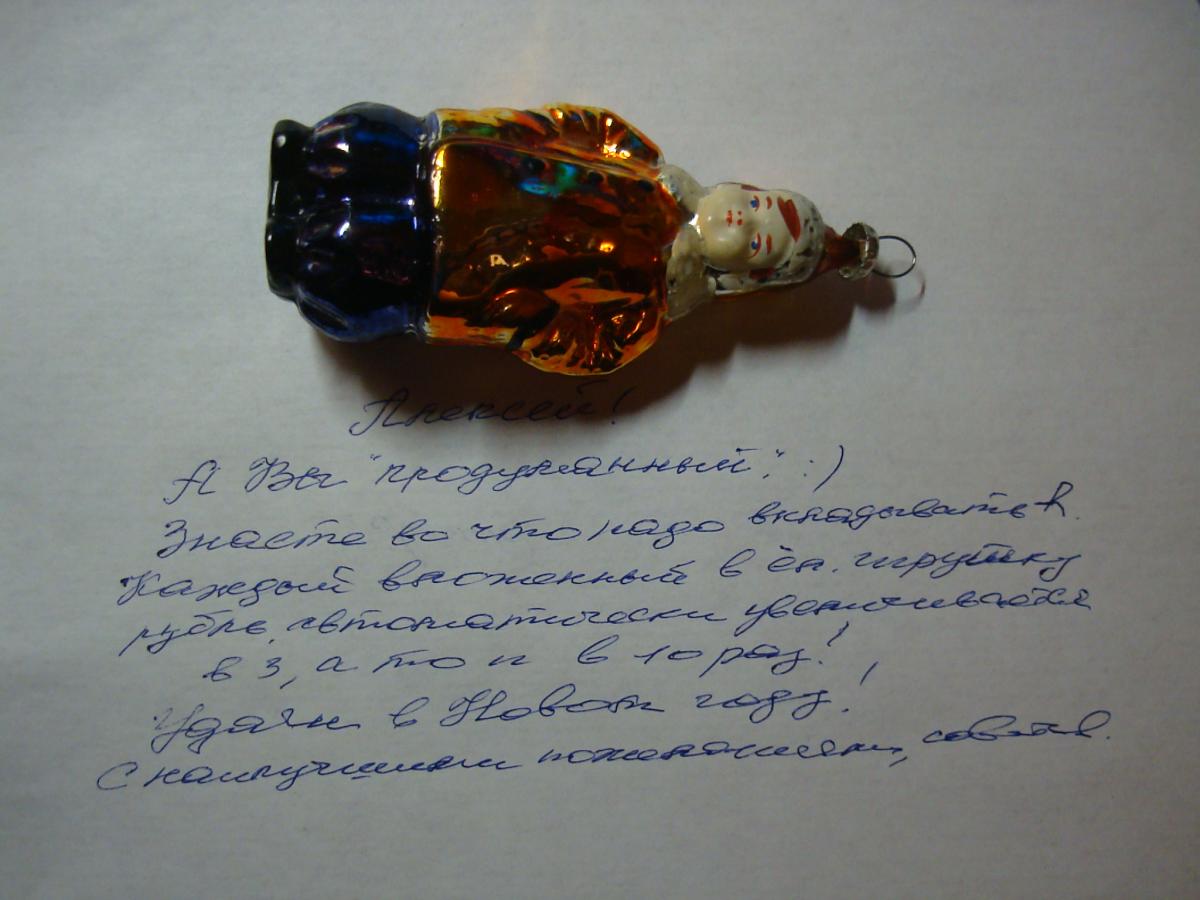 Алексей!
А Вы "продуманный". :)
Знаете во что надо вкладывать?
Каждый вложенный в ёл. игрушку
рубль, автоматически увеличивается
в 3, а то и в 10 раз!
Удачи в Новом году!
С наилучшими пожеланиями,